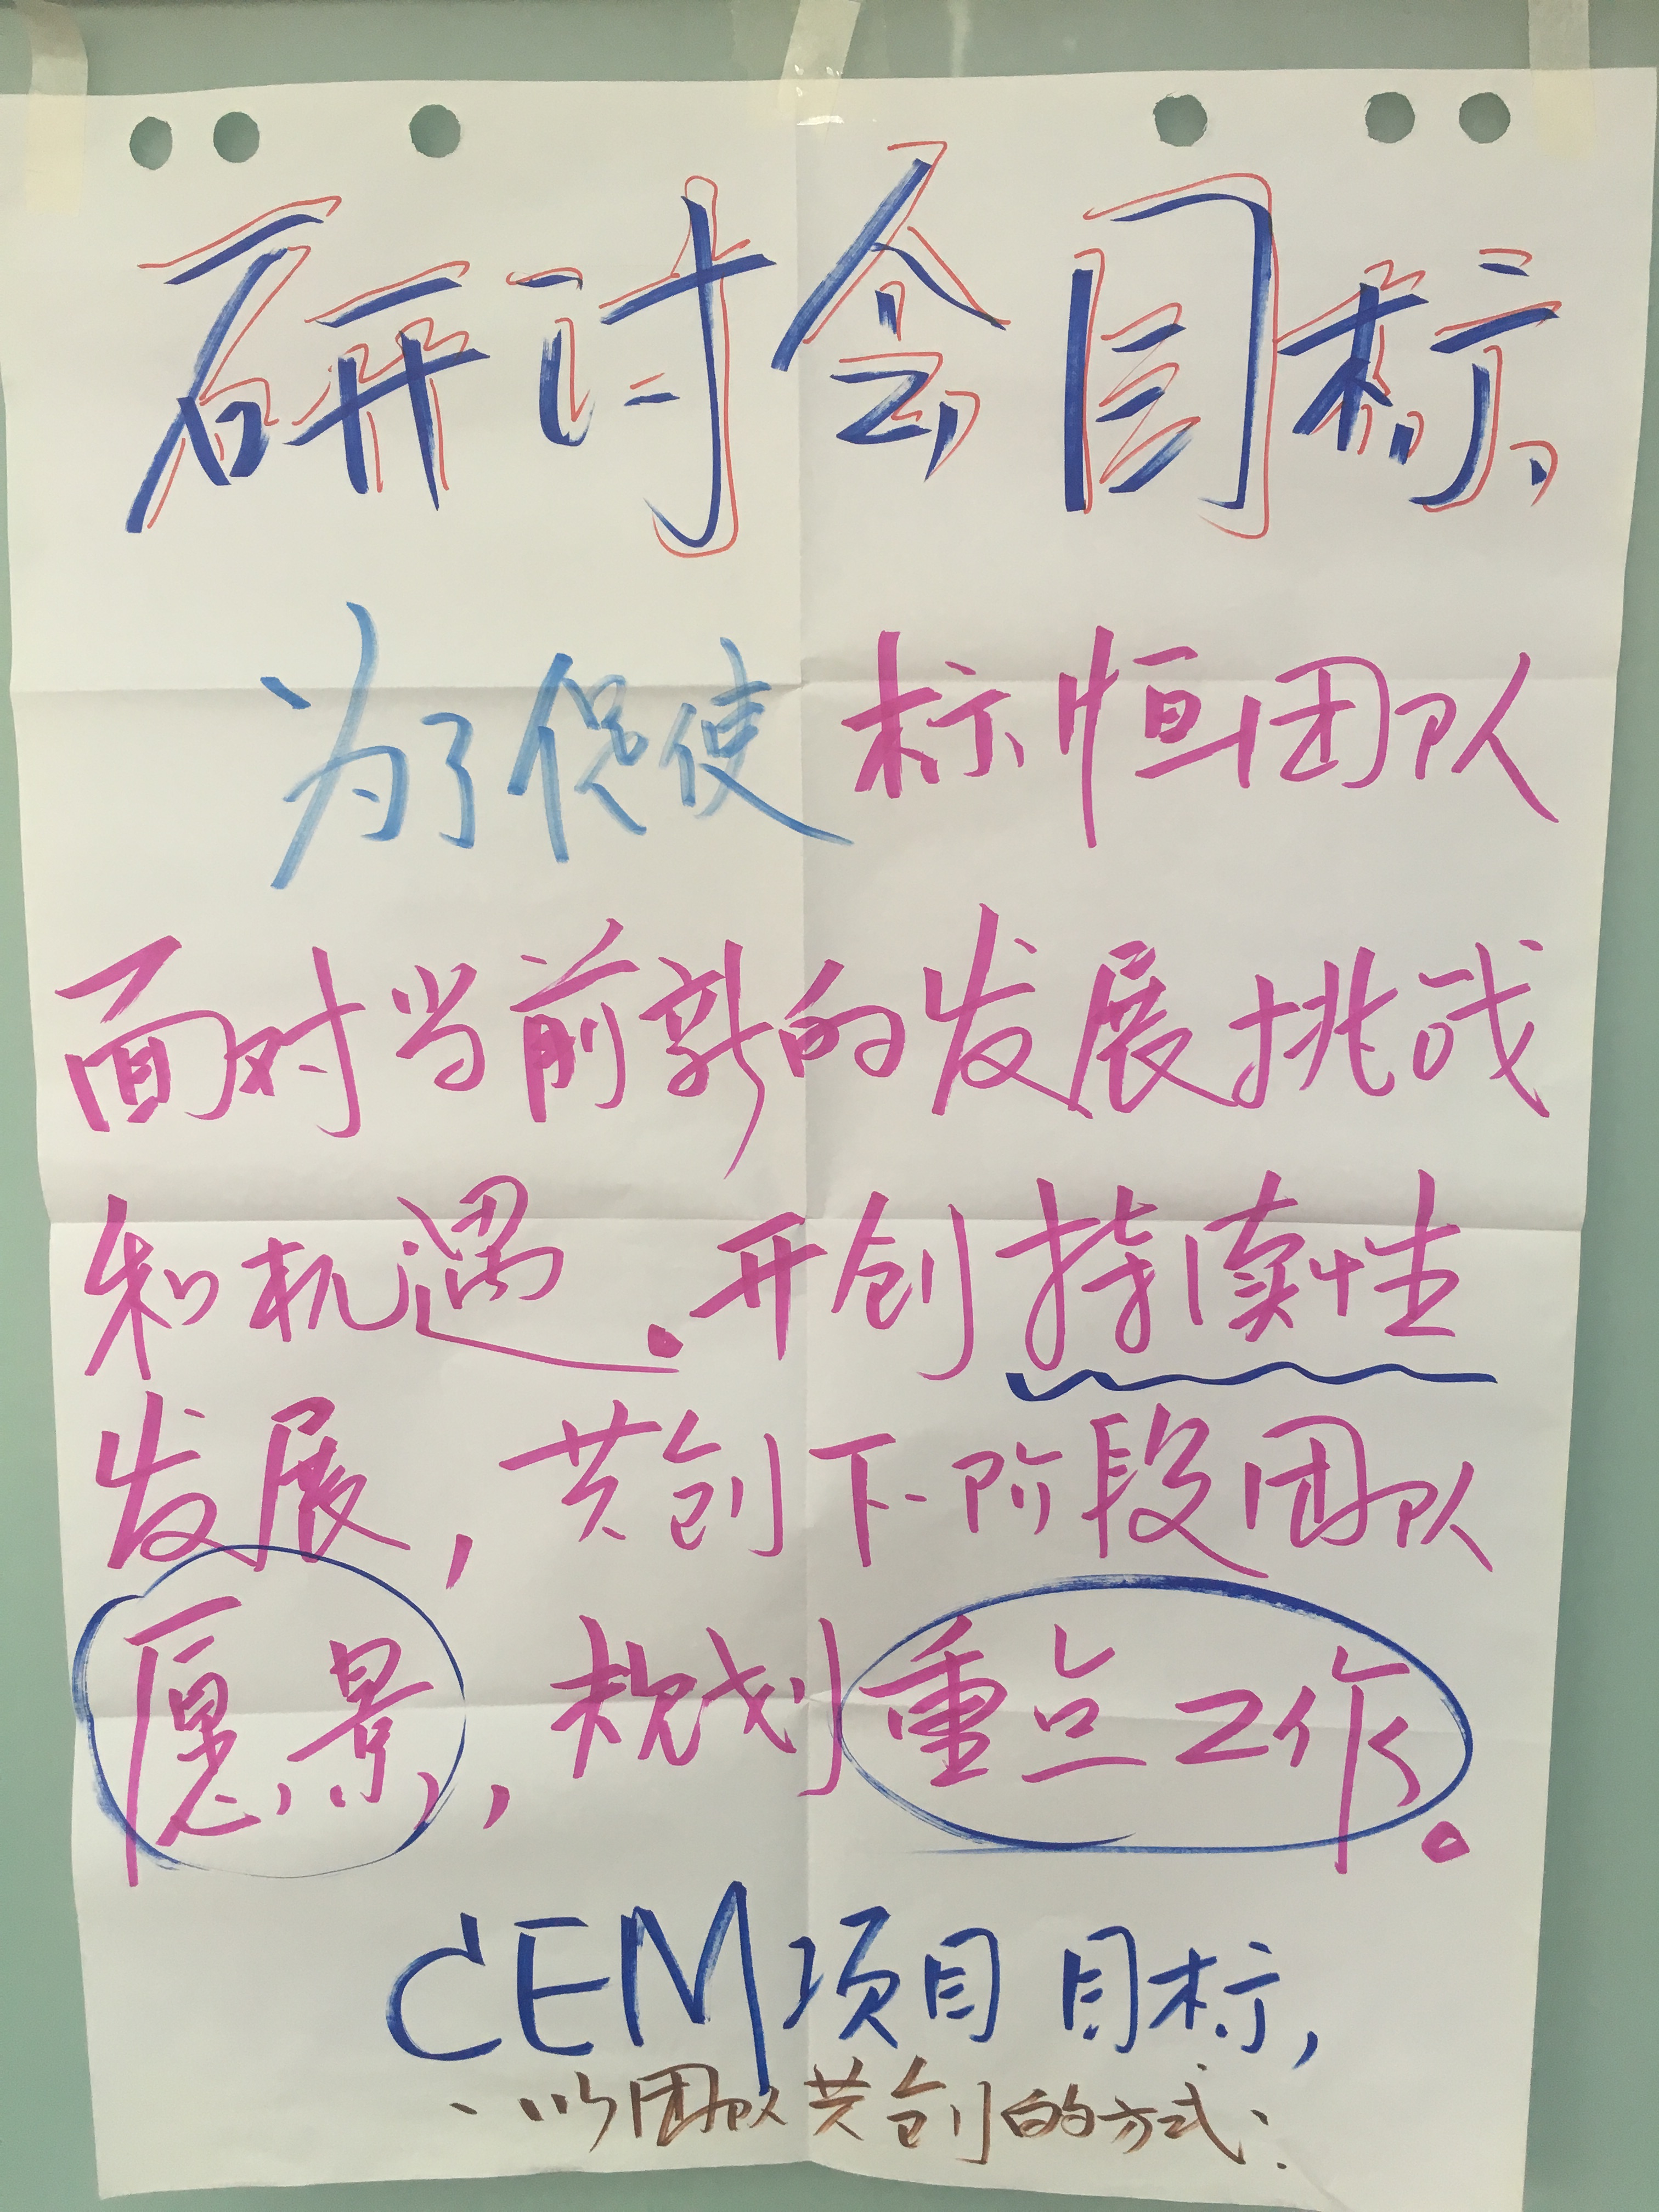 研讨会目标
为了促使标恒团队
面对当前新的发展挑战
和机遇.开创持续性
发展,共创下阶段团队
愿景,规划重点工作.
CEM项目目标,
、以团队共创的方式: